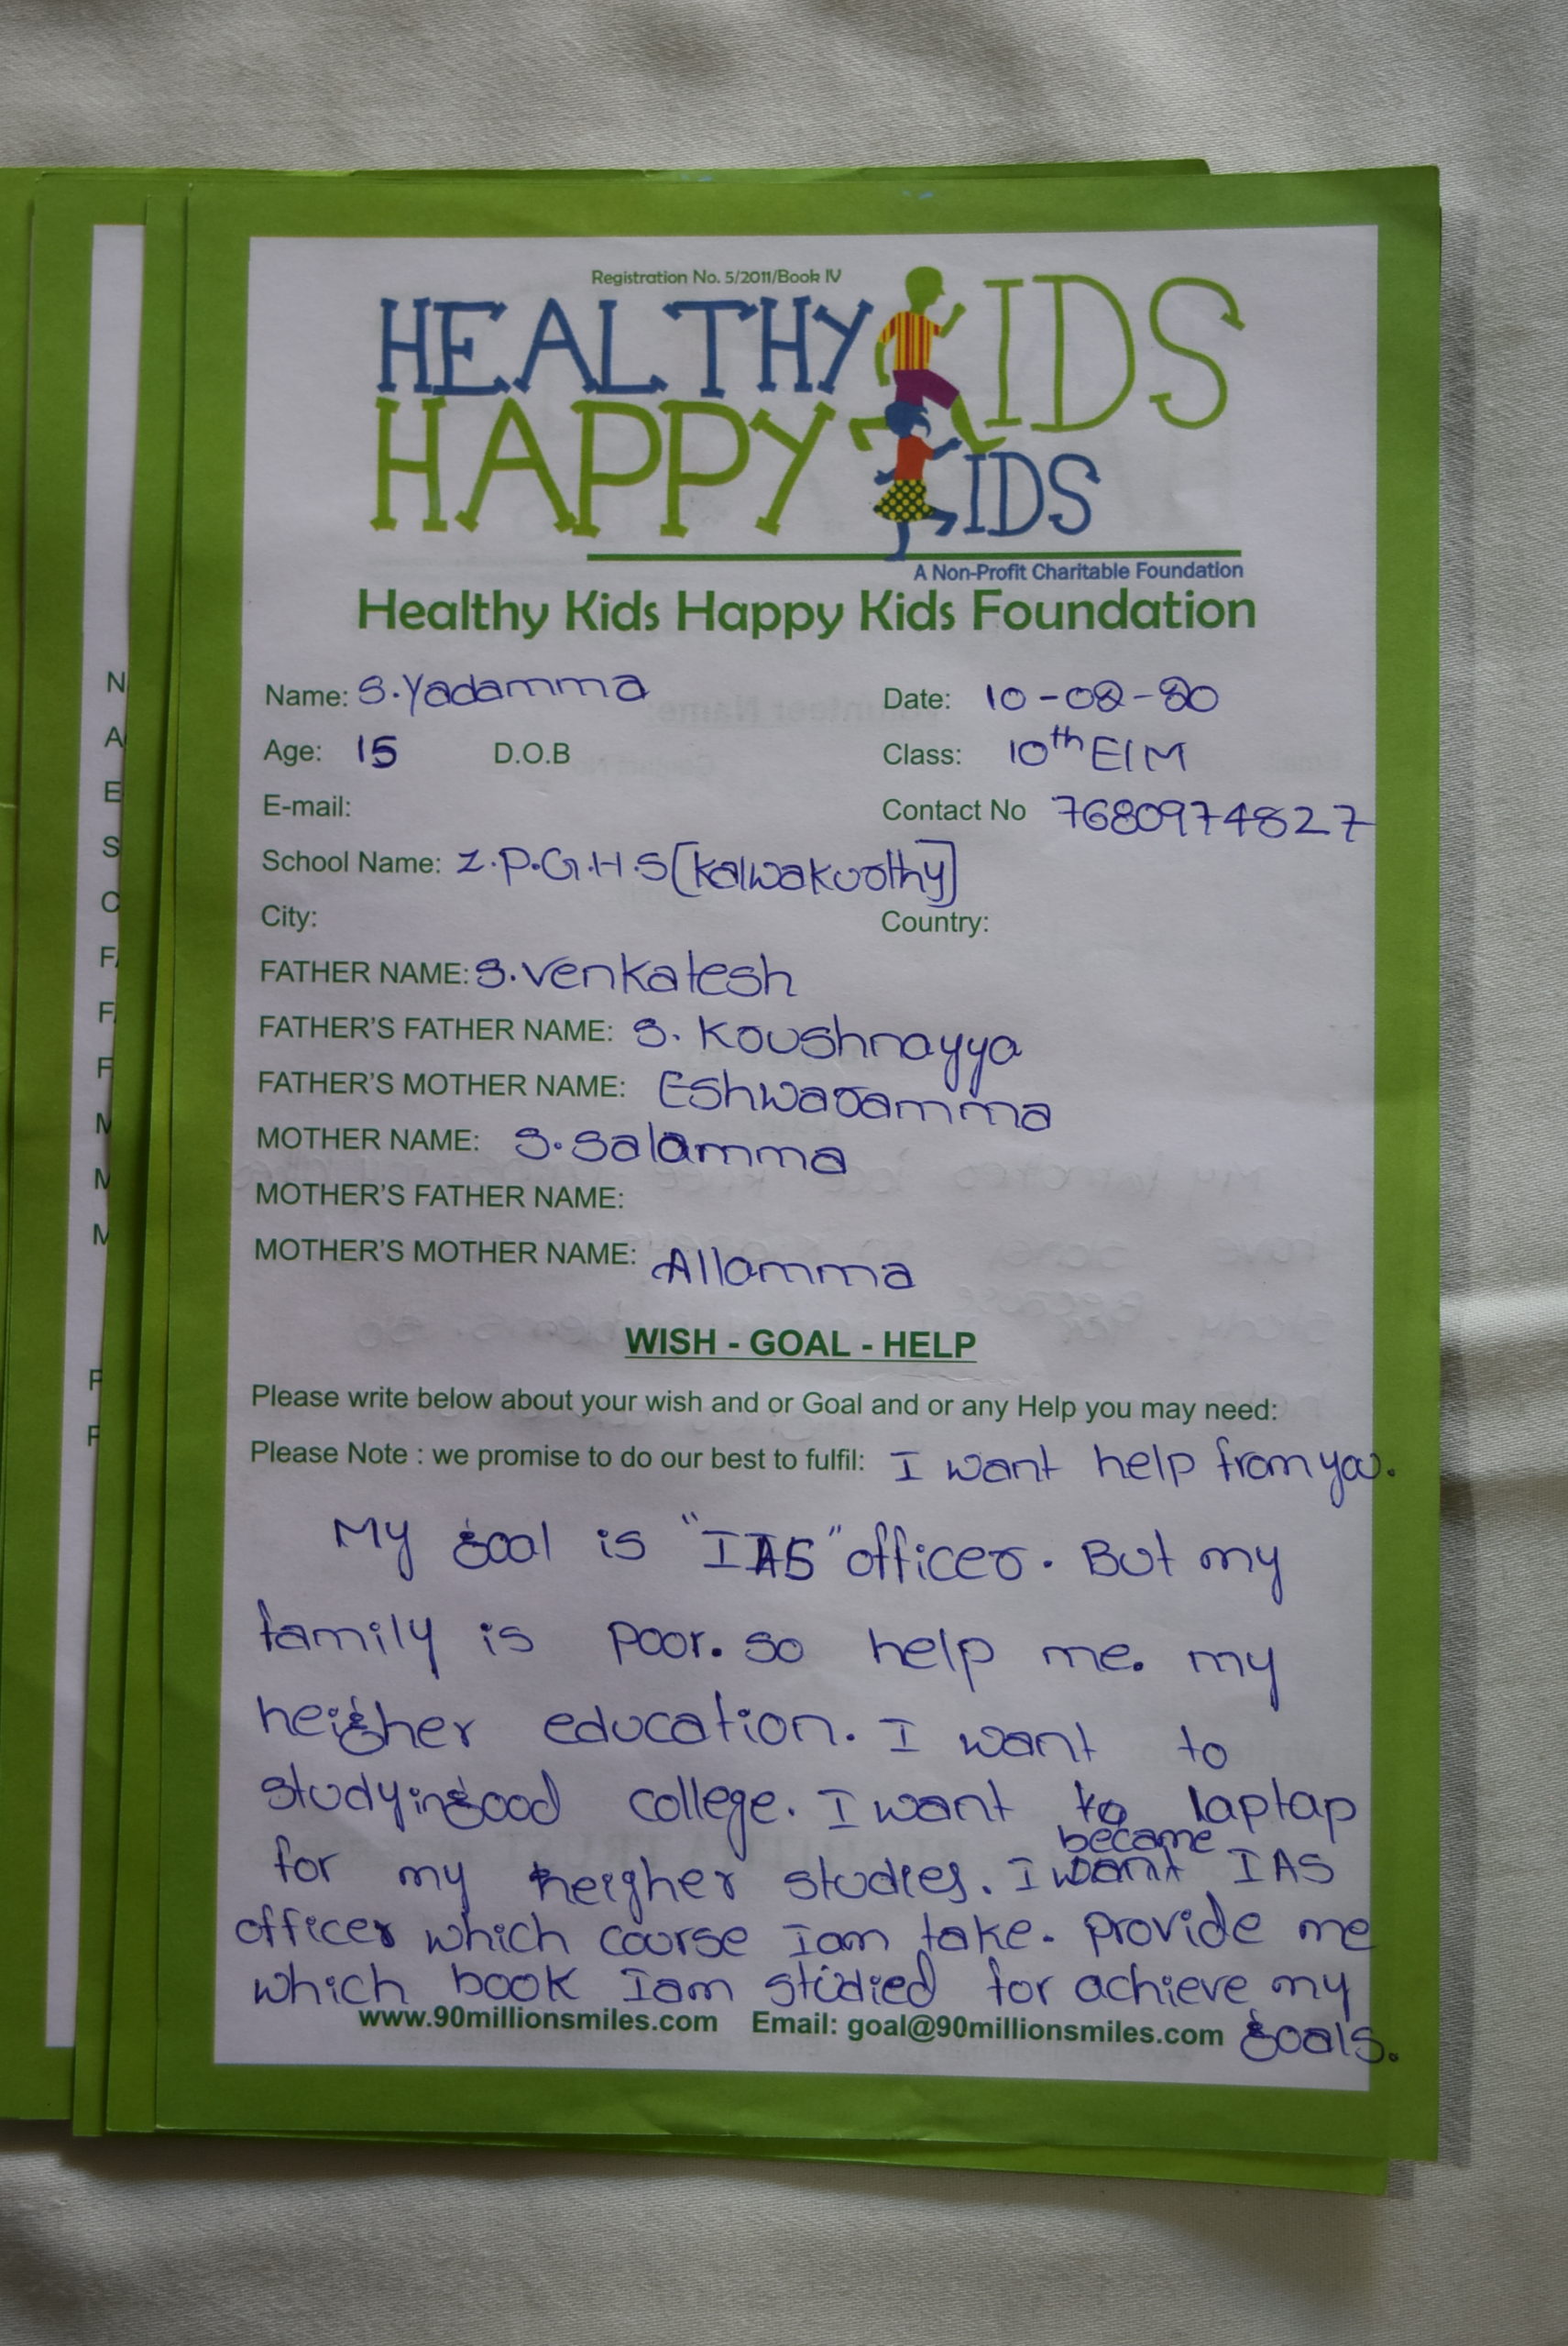 Registration No. 5/2011/Book IV
HEALTHY KIDS
HAPPY KIDS
A Non-Profit Charitable Foundation
Healthy Kids Happy Kids Foundation
Name: S.Yadamma Date: 10-02-20
Age: 15 D.O.B Class: 10th E/M
E-mail: Contact No 7680974827
School Name: Z.P.G.H.S [Kalwakurthy]
City: Country:
FATHER NAME: S.Venkatesh
FATHER'S FATHER NAME: S. Koushnayya
FATHER'S MOTHER NAME: Eshwaramma
MOTHER NAME: S.Salamma
MOTHER'S FATHER NAME:
MOTHER'S MOTHER NAME: Allamma
WISH - GOAL - HELP
Please write below about your wish and or Goal and or any Help you may need:
Please Note : we promise to do our best to fulfil: I want help from you.
My goal is "IAS" officer. But my
family is poor. so help me. my
heigher education. I want to
study in good college. I want to laptap
became
for my heigher studies. I want IAS
officer which course Iam take. provide me
which book Iam studied for achieve my
www.90millionsmiles.com Email: goal@90millionsmiles.com goals.
N
A
E
S
C
F
F
F
M
M
M
P
P